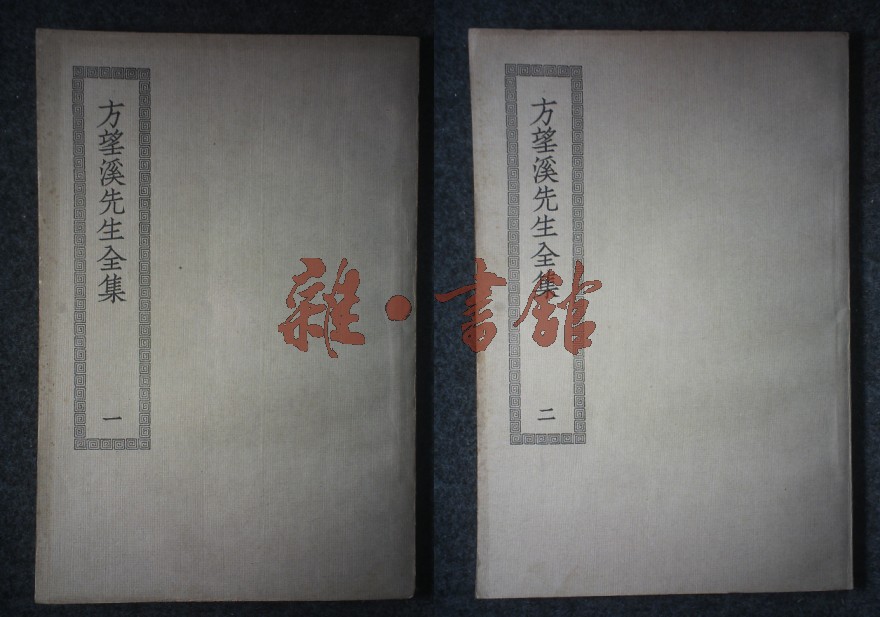 方望溪先生全集
一
方望溪先生全集
二
雜·書館